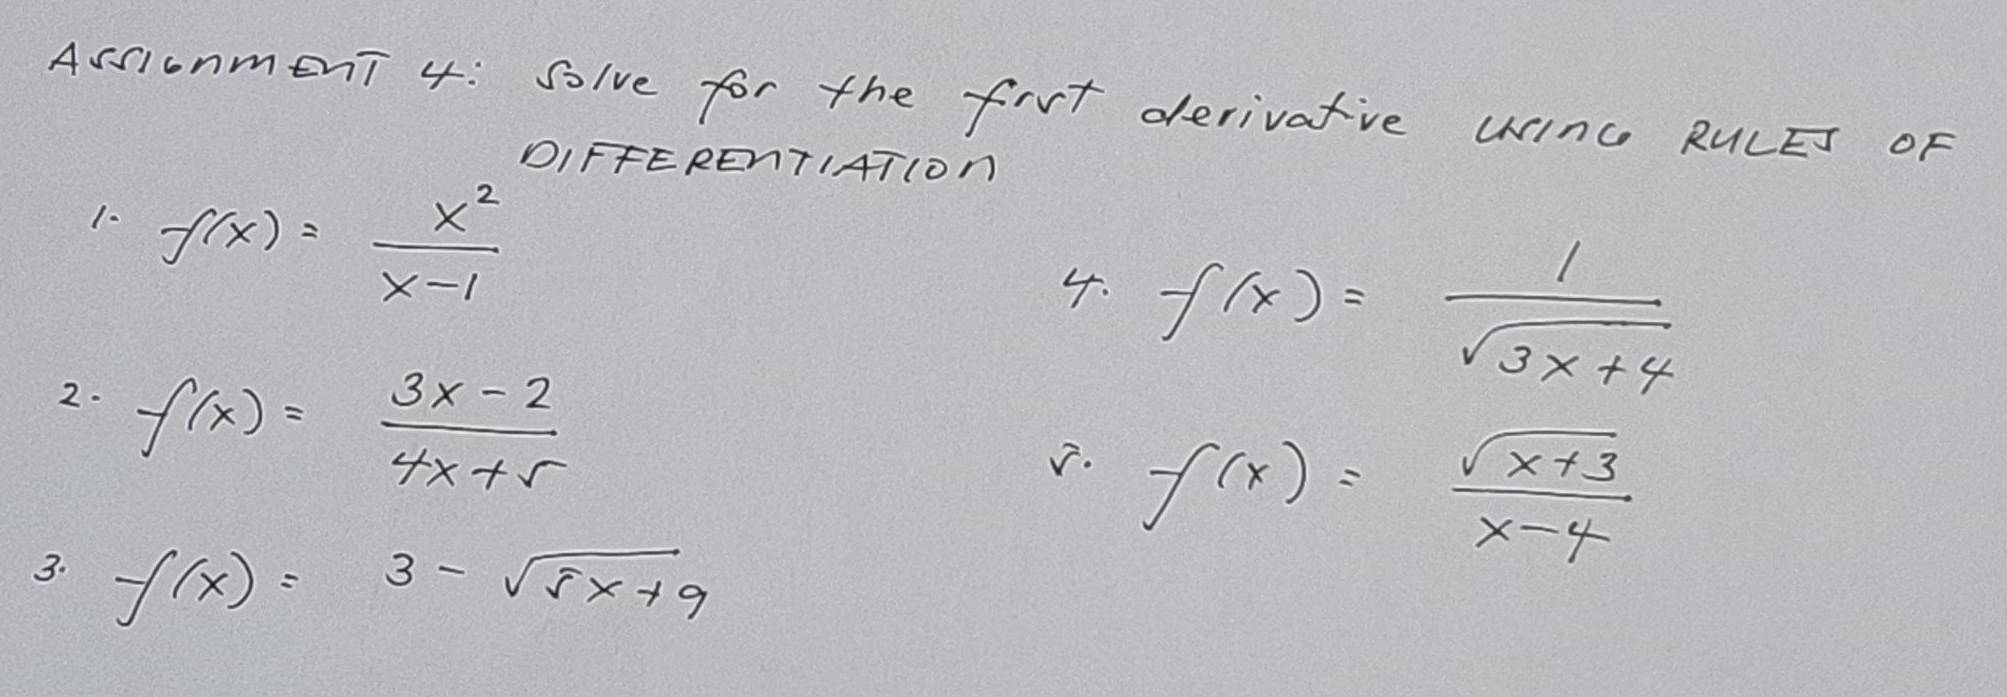 ASSIGNMENT 4: Solve for the first derivative USING RULES OF
DIFFERENTIATION
1. f(x) = x² / x-1
2. f(x) = 3x - 2 / 4x + 5
3. f(x) = 3 - √5x+9
4. f(x) = 1 / √3x+4
5. f(x) = √x+3 / x-4